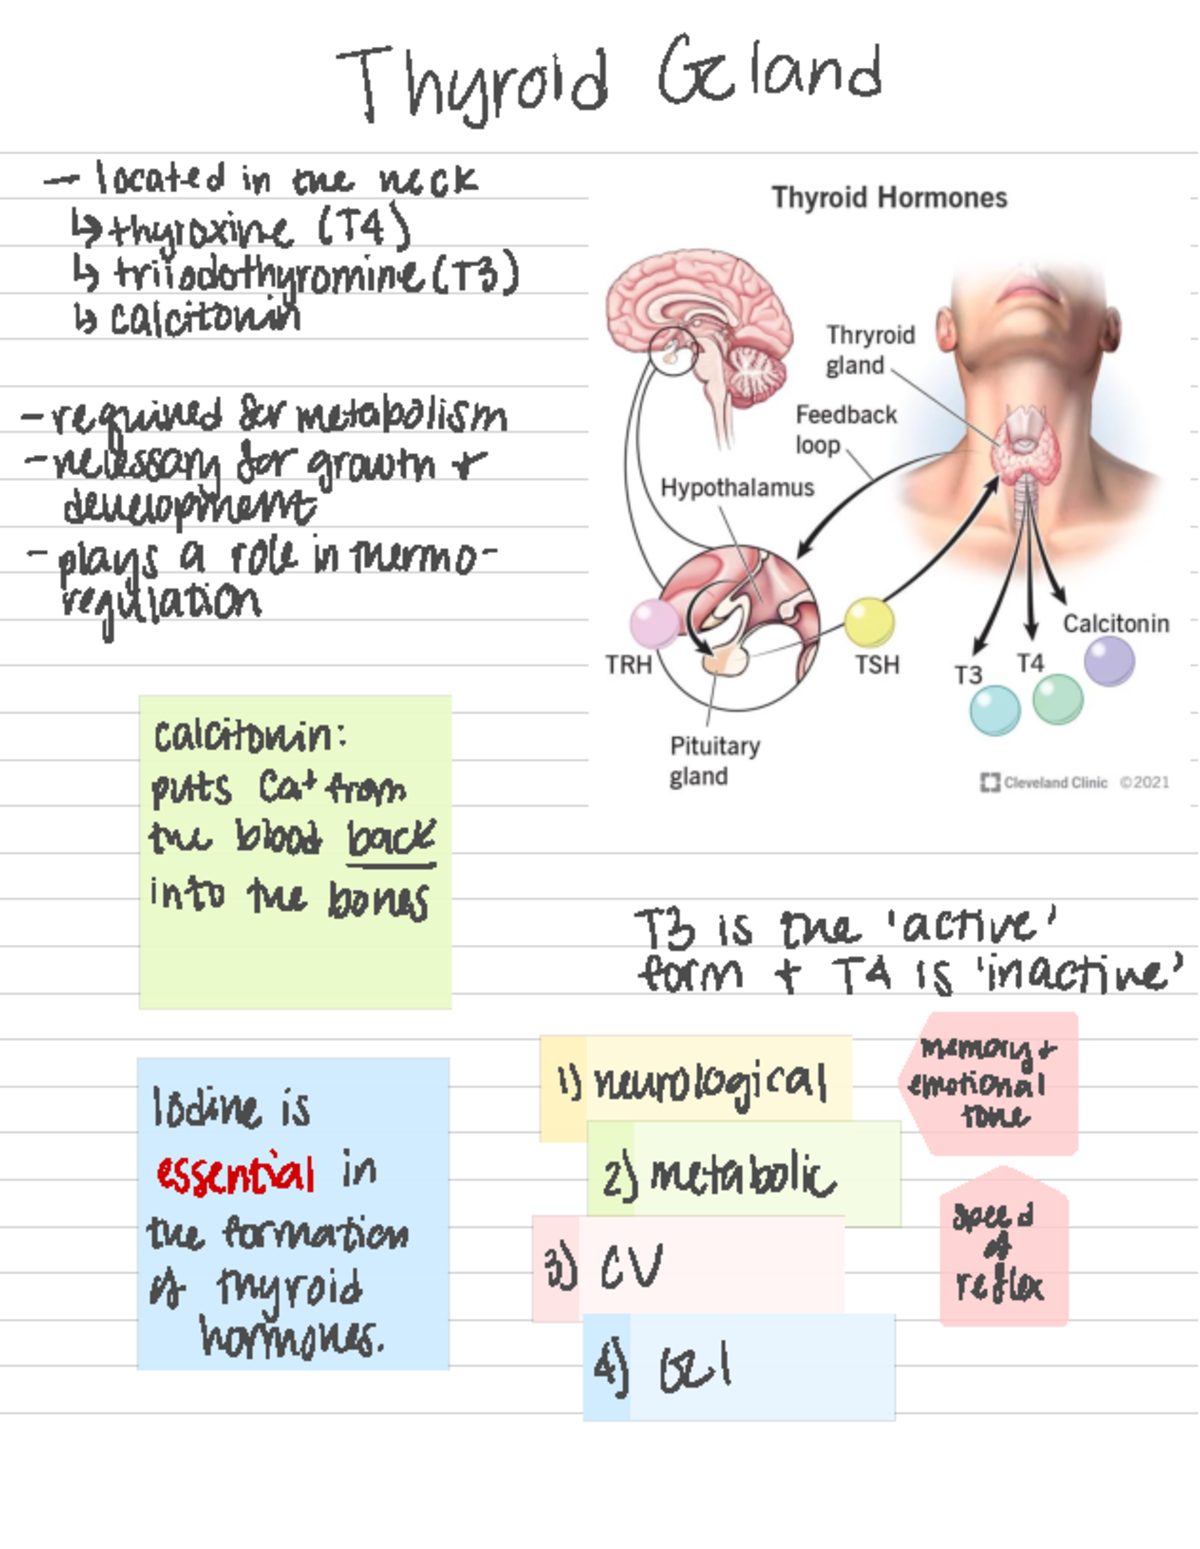 Thyroid Gland
- located in the neck
↳ thyroxine (T4)
↳ triiodothyromine (T3)
↳ calcitonin
- required for metabolism
- necessary for growth +
development
- plays a role in thermo-
regulation
Thyroid Hormones
Thryroid
gland
Feedback
loop
Hypothalamus
TRH
TSH
Pituitary
gland
T3
T4
Calcitonin
Cleveland Clinic ©2021
calcitonin:
puts Ca+ from
the blood back
into the bones
T3 is the 'active'
form + T4 is 'inactive'
Iodine is
essential in
the formation
of thyroid
hormones.
1) neurological
2) metabolic
3) CV
4) GI
memory +
emotional
tone
speed
of
reflex